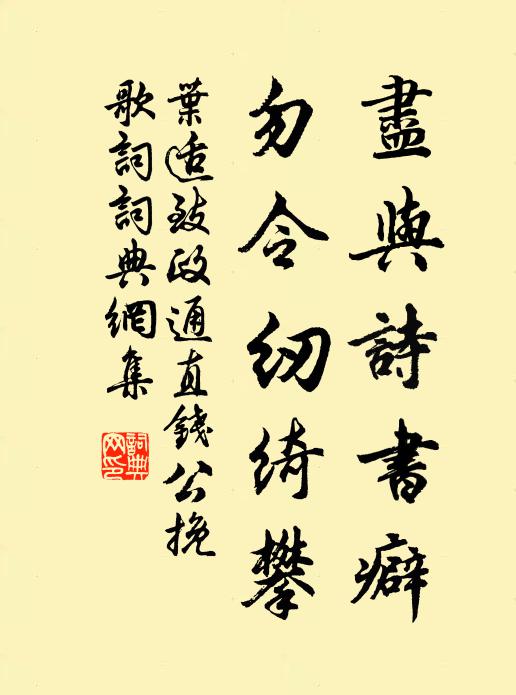 盡與詩書癖
勿令纫綺攀
葉适致政通直錢公挽
歌詞詞典網集
詞典
网印